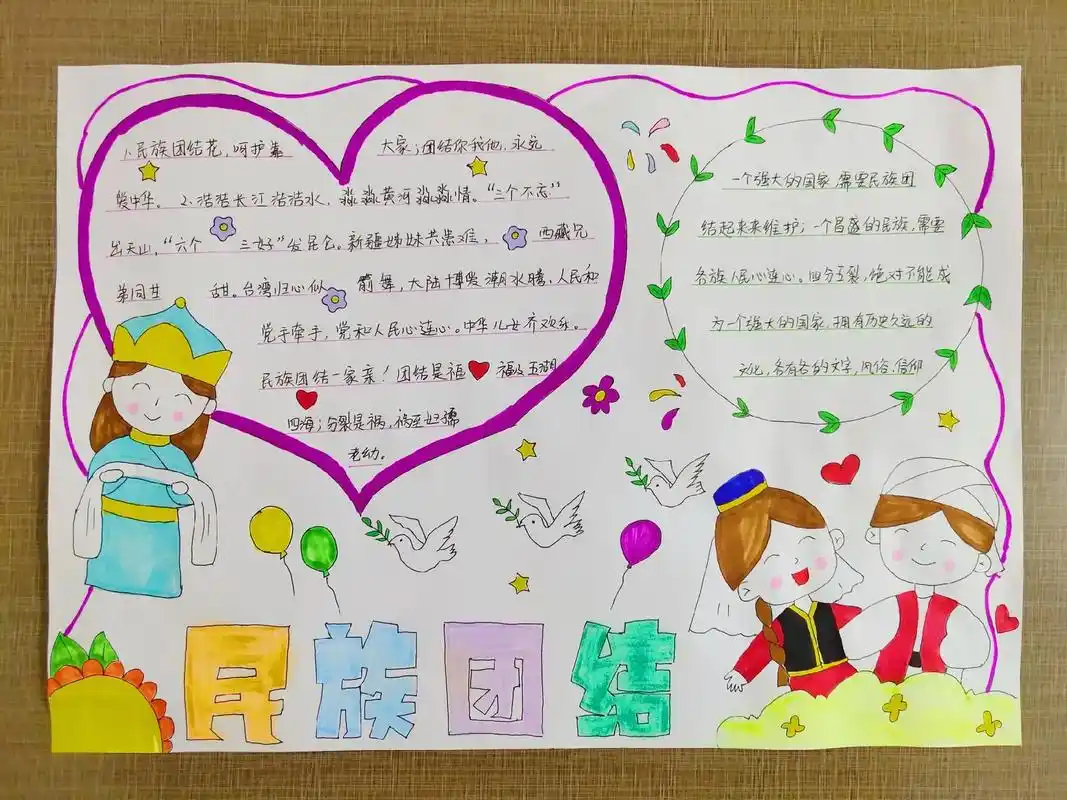 1.民族团结花,呵护靠 大家;团结你我他,永远
爱中华。 2.浩浩长江浩浩水,淼淼黄河淼淼情。“三个不忘”
出天山,“六个 三好”发昆仑。新疆姊妹共患难, 西藏兄
弟同甘 甜。台湾归心似 箭舞,大陆博爱潮水腾,人民和
党手牵手,党和人民心连心。中华儿女齐欢乐。
民族团结一家亲!团结是福 福及五湖
四海;分裂是祸,祸至妇孺
老幼。
一个强大的国家,需要民族团
结起来来维护;一个昌盛的民族,需要
各族人民心连心。四个五裂,绝对不能成
为一个强大的国家,拥有历史久远的
文化,各有各的文字,风俗,信仰
民族团结